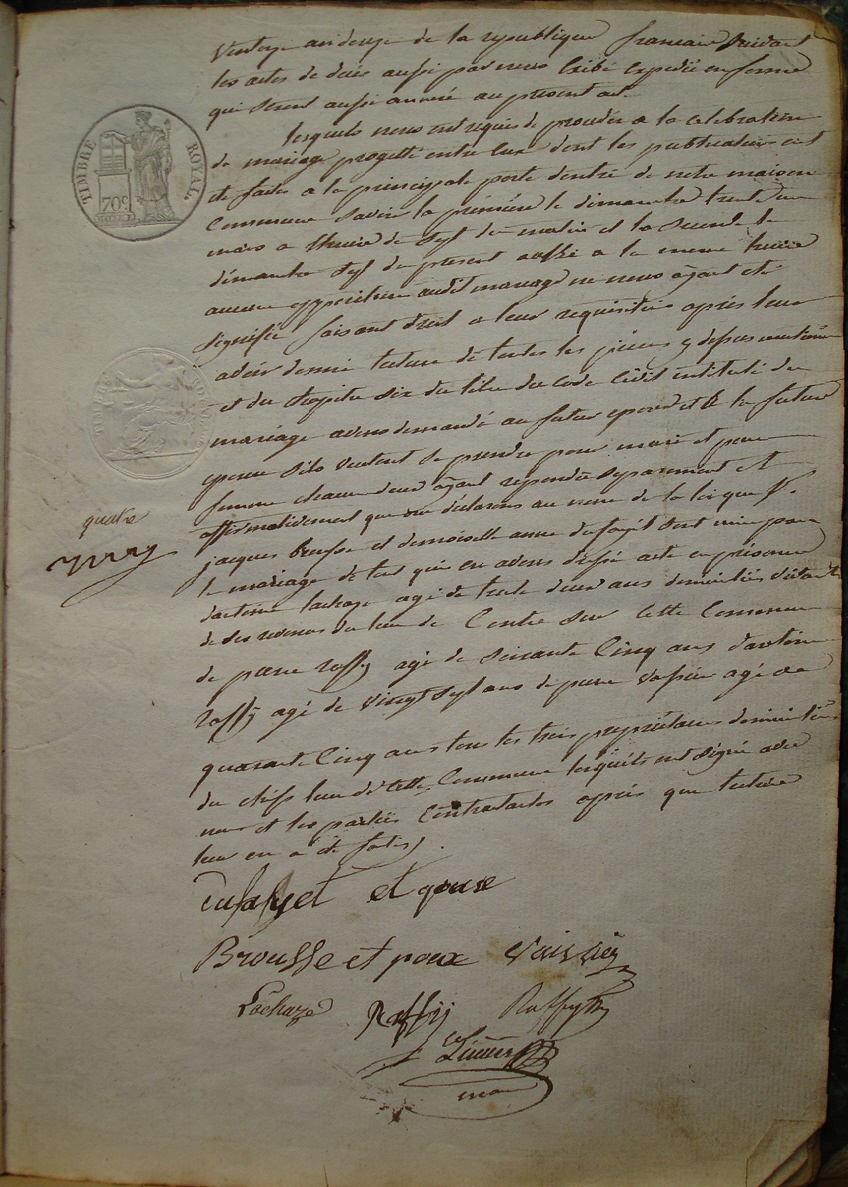 Ventose an douze de la republique francaise suivant
les actes de deces aussi par nous exibé expedié en forme
qui seront aussi annexé au present acte
lesquels nous ont requis de proceder a la celebration
du mariage projetté entre eux dont les publications ont
été faites a la principale porte dentrée de notre maison
Commune savoir la premiere le dimanche trente un
mars a lheure de sept du matin et la seconde le
dimanche sept du present aussi a la meme heure
aucune opposition audit mariage ne nous ayant eté
signifiée faisant droit a leur requisition apres leur
avoir donné lecture de toutes les pieces cy dessus mentionné
et du chapitre six du titre du code Civil intitulé du
mariage avons demandé au futur epoux et a la future
epouse sils veulent se prendre pour mari et pour
femme chacun deux ayant repondu separement et
affirmativement que oui declarons au nom de la loi que
jacques brousse et demoiselle anne dufayet sont unis par
le mariage de tout quoi en avons dressé acte en presence
dantoine lachaze agé de trente deux ans
de ses revenus du lieu de sur cette Commune
de pierre raffy agé de soixante Cinq ans dantoine
raffy agé de vingt sept ans de pierre agé de
quarante Cinq ans tous les trois proprietaires
du chef lieu de cette Commune lesquels ont signé avec
nous et les parties Contractantes apres que lecture
leur en a été faite
TIMBRE ROYAL
70c
quatre
Dufayet epouse
Brousse epoux Vaissier
Lachaze Raffÿ Raffy
maire